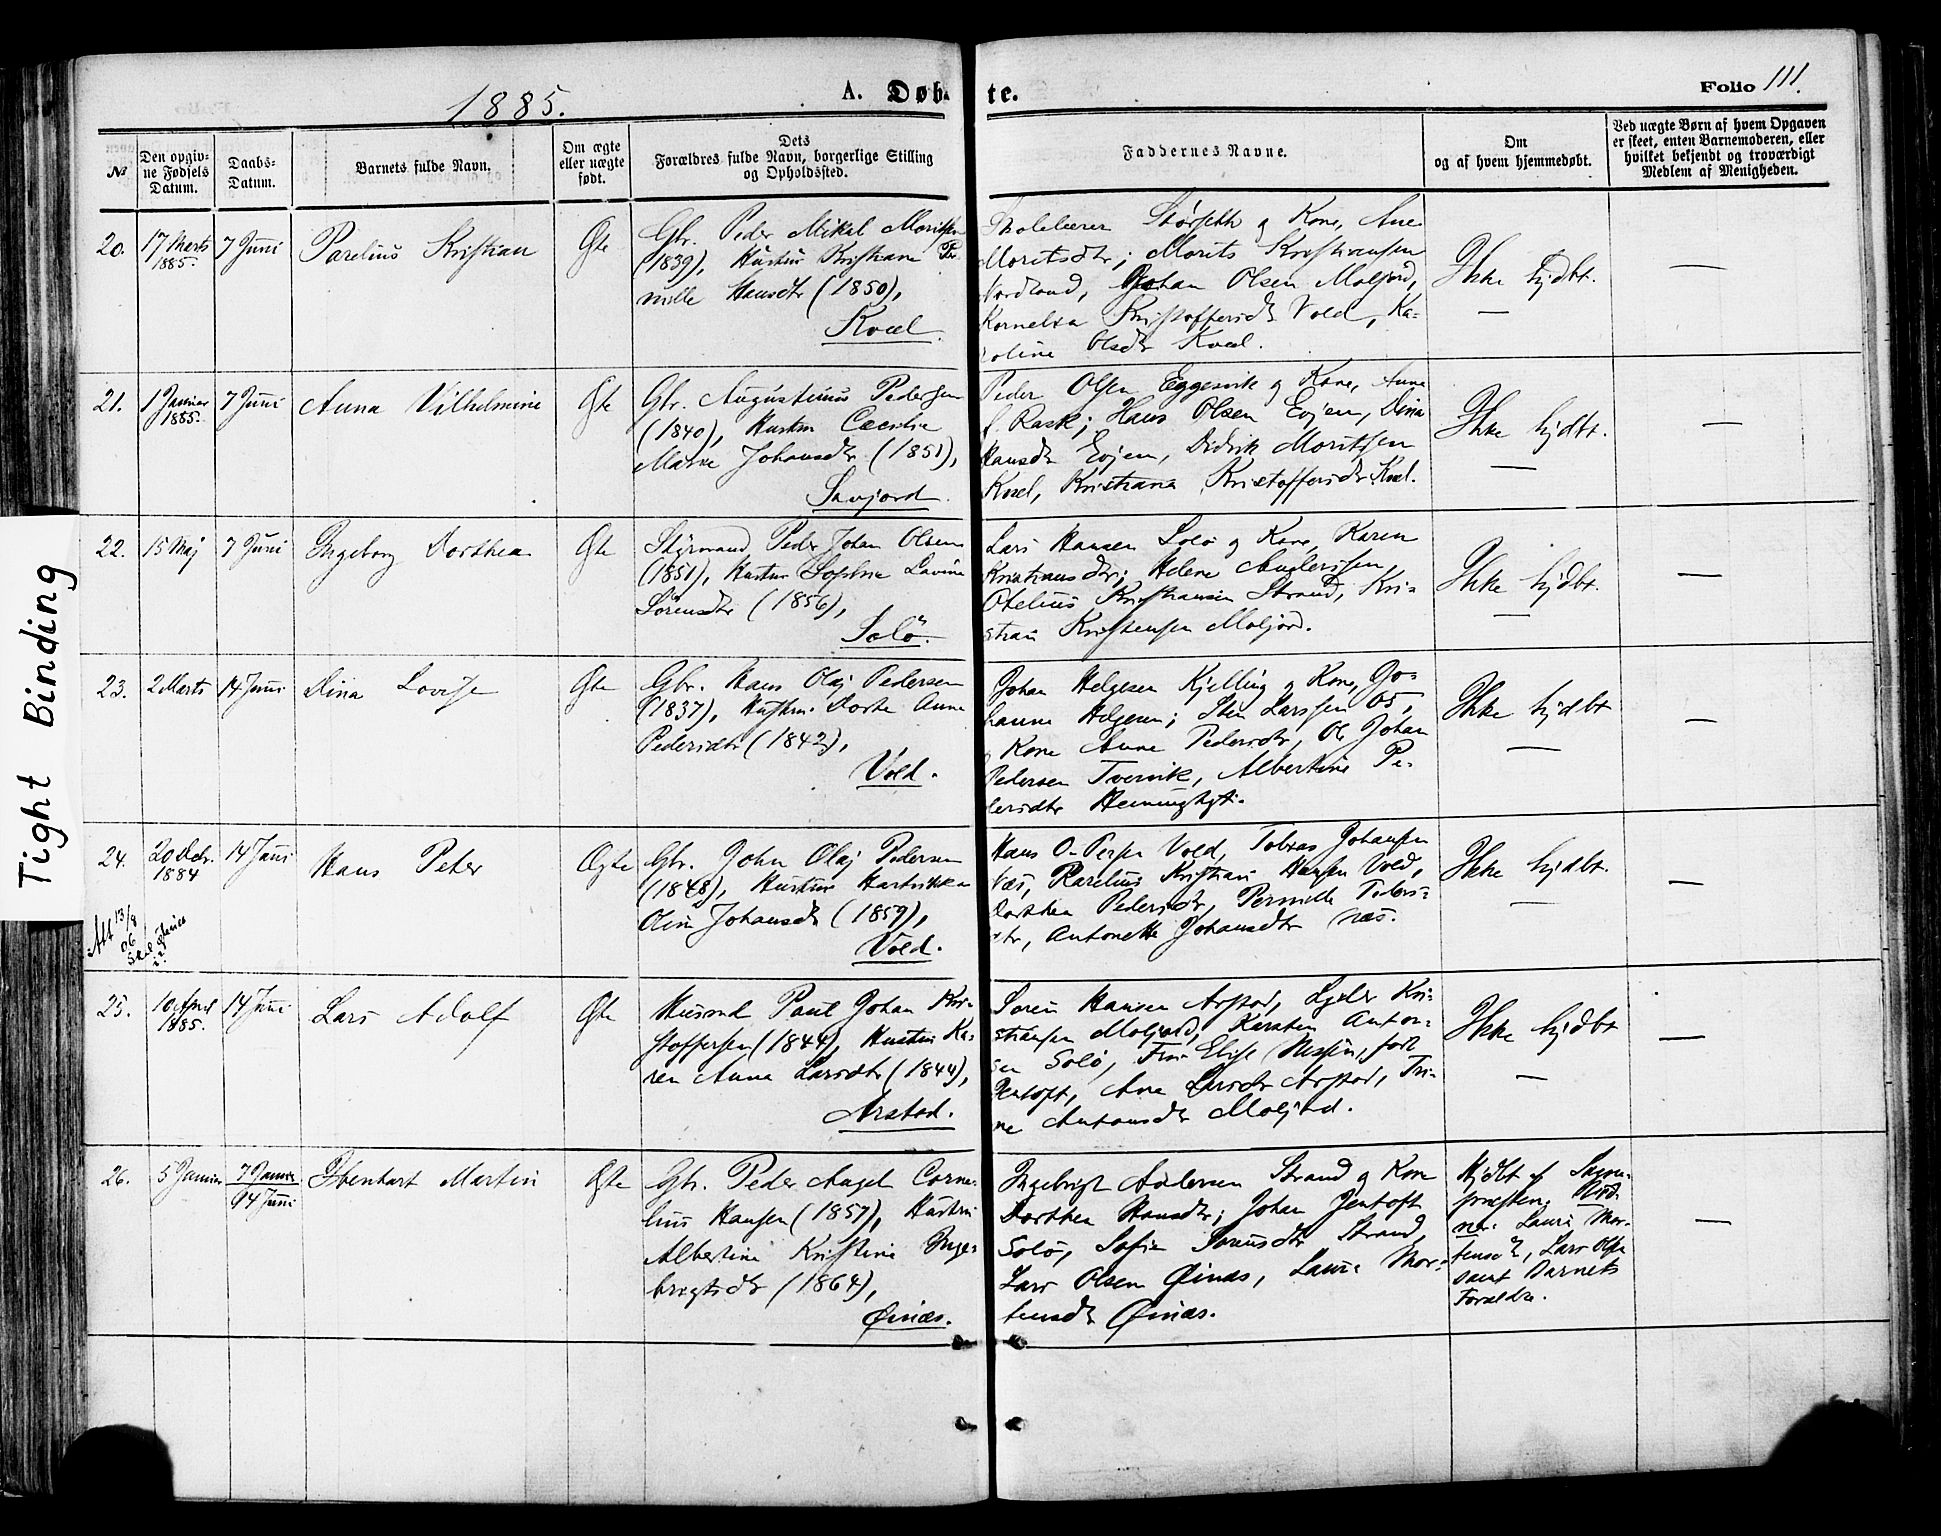 1885.
A. Døbte.
Folio 111.
Tight Binding
№
Den opgiv-
ne Fødsels
Datum.
Daabs-
Datum.
Barnets fulde Navn.
Om ægte
eller uægte
født.
Dets
Forældres fulde Navn, borgerlige Stilling
og Opholdssted.
Faddernes Navne.
Om
og af hvem hjemmedøbt.
Ved uægte Børn af hvem Opgaven
er skeet, enten Barnemoderen, eller
hvilket bekjendt og troværdigt
Medlem af Menigheden.
20.
17 Marts
1885.
7 Juni
Parelius Kristian
Gbr. Peder Mikal Moritsen
(1839), Hustru Kristiane Per
nille Hansdtr (1850),
Kvæl.
Kone, Ane
Moritsdtr; Morits Kristiansen
Nordland, Johan Olsen Moljord,
Kornelia Kristoffersdtr Vold, Ka-
roline Olsdtr Kvæl.
Ikke hjdbt.
—
—
21.
1 Januar
1885.
7 Juni
Anna Vilhelmine
Gbr. Augustinus Pedersen
(1840), Hustru Cæcilie
Marie Johansdtr (1851),
Savjord.
Peder Olsen Eggesvik og Kone, Anna
f. Rask; Hans Olsen Evjen, Dina
Hansdtr Evjen, Didrik Moritsen
Kvæl, Kristiana Kristoffersdtr Kvæl.
Ikke hjdbt.
—
—
22.
15 Maj
7 Juni
Ingeborg Dorthea
Styrmand Peder Johan Olsen
(1851), Hustru Sophie Lavine
Sørensdtr (1856),
Solø.
Lars Hansen Solø og Kone, Karen
Kristiansdtr; Helene Anderssen,
Otelius Kristiansen Strand, Kri-
stian Kristensen Moljord.
Ikke hjdbt.
—
—
23.
2 Marts
14 Juni
Dina Lovise
Gbr. Hans Olaj Pedersen
(1837), Hustru Dorte Anna
Pedersdtr (1842),
Vold.
Johan Helgesen Kjelling og Kone, Jo-
hanne Helgesen; Sten Larssen Os,
Kone Anne Pedersdtr, Ole Johan
Pedersen Tvervik, Albertine Pe-
dersdtr
Ikke hjdbt
—
—
24.
20 Octr.
1884
14 Juni
Hans Peter
Ægte
Gbr. John Olaj Pedersen
(1848), Hustru Hartvikka
Olin Johansdtr (1859),
Vold.
Hans O. Persen Vold, Tobias Johansen
Næs, Parelius Kristian Hansen Vold,
Dorthea Pedersdtr, Pernille Tobias-
dtr, Antonette Johansdtr Næs.
Ikke hjdbt.
—
—
Att 13/8
06
25.
10 April
1885.
14 Juni
Lars Adolf
Husmd Paul Johan Kri-
stoffersen (1844), Hustru Ka-
ren Anna Larsdtr (1844),
Arstad.
Søren Hansen Arstad, Kri-
stiansen Moljord, Karsten Anton-
sen Solø, Fru Elise Nissen, født
Jentoft, Ane Larsdtr Arstad, Tri-
ne Antonsdtr Moljord.
Ikke hjdbt
—
—
26.
5 Januar
7 Januar
14 Juni
Ebenhart Martin
Gbr. Peder Angel Corne-
lius Hansen (1857), Hustru
Albertine Kristine Inge-
brigtsdtr (1864),
Øinæs.
Ingebrigt Andersen Strand og Kone
Dorthea Hansdtr; Johan Jentoft
Solø, Sofie Sørensdtr Strand,
Lars Olsen Øinæs, Laura Mor-
tensdtr Øinæs.
Hjdbt af Sogne-
præsten. Vid-
ner: Laura Mor-
tensdtr, Lars Olsen
samt Barnets
Forældre.
—